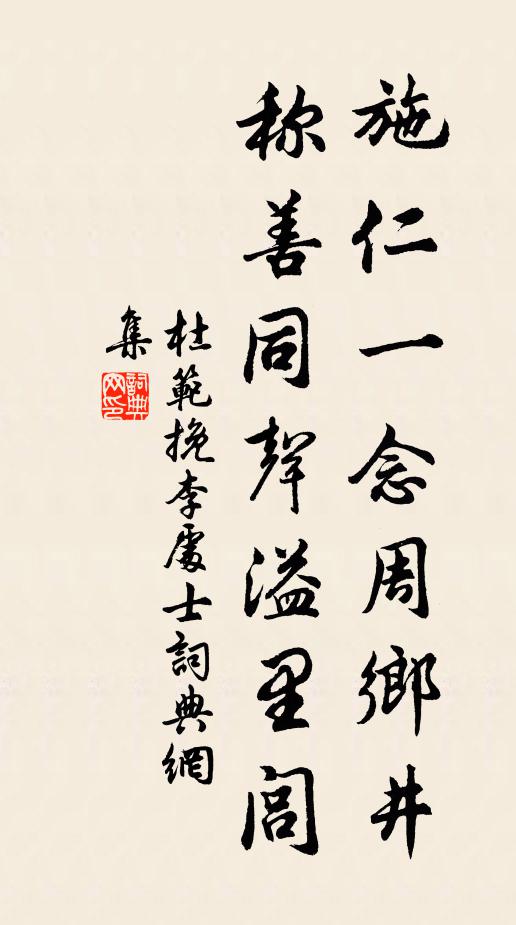 施仁一念周鄉井
称善同聲溢里閭
杜範挽李處士詞典網
集
詞典网印